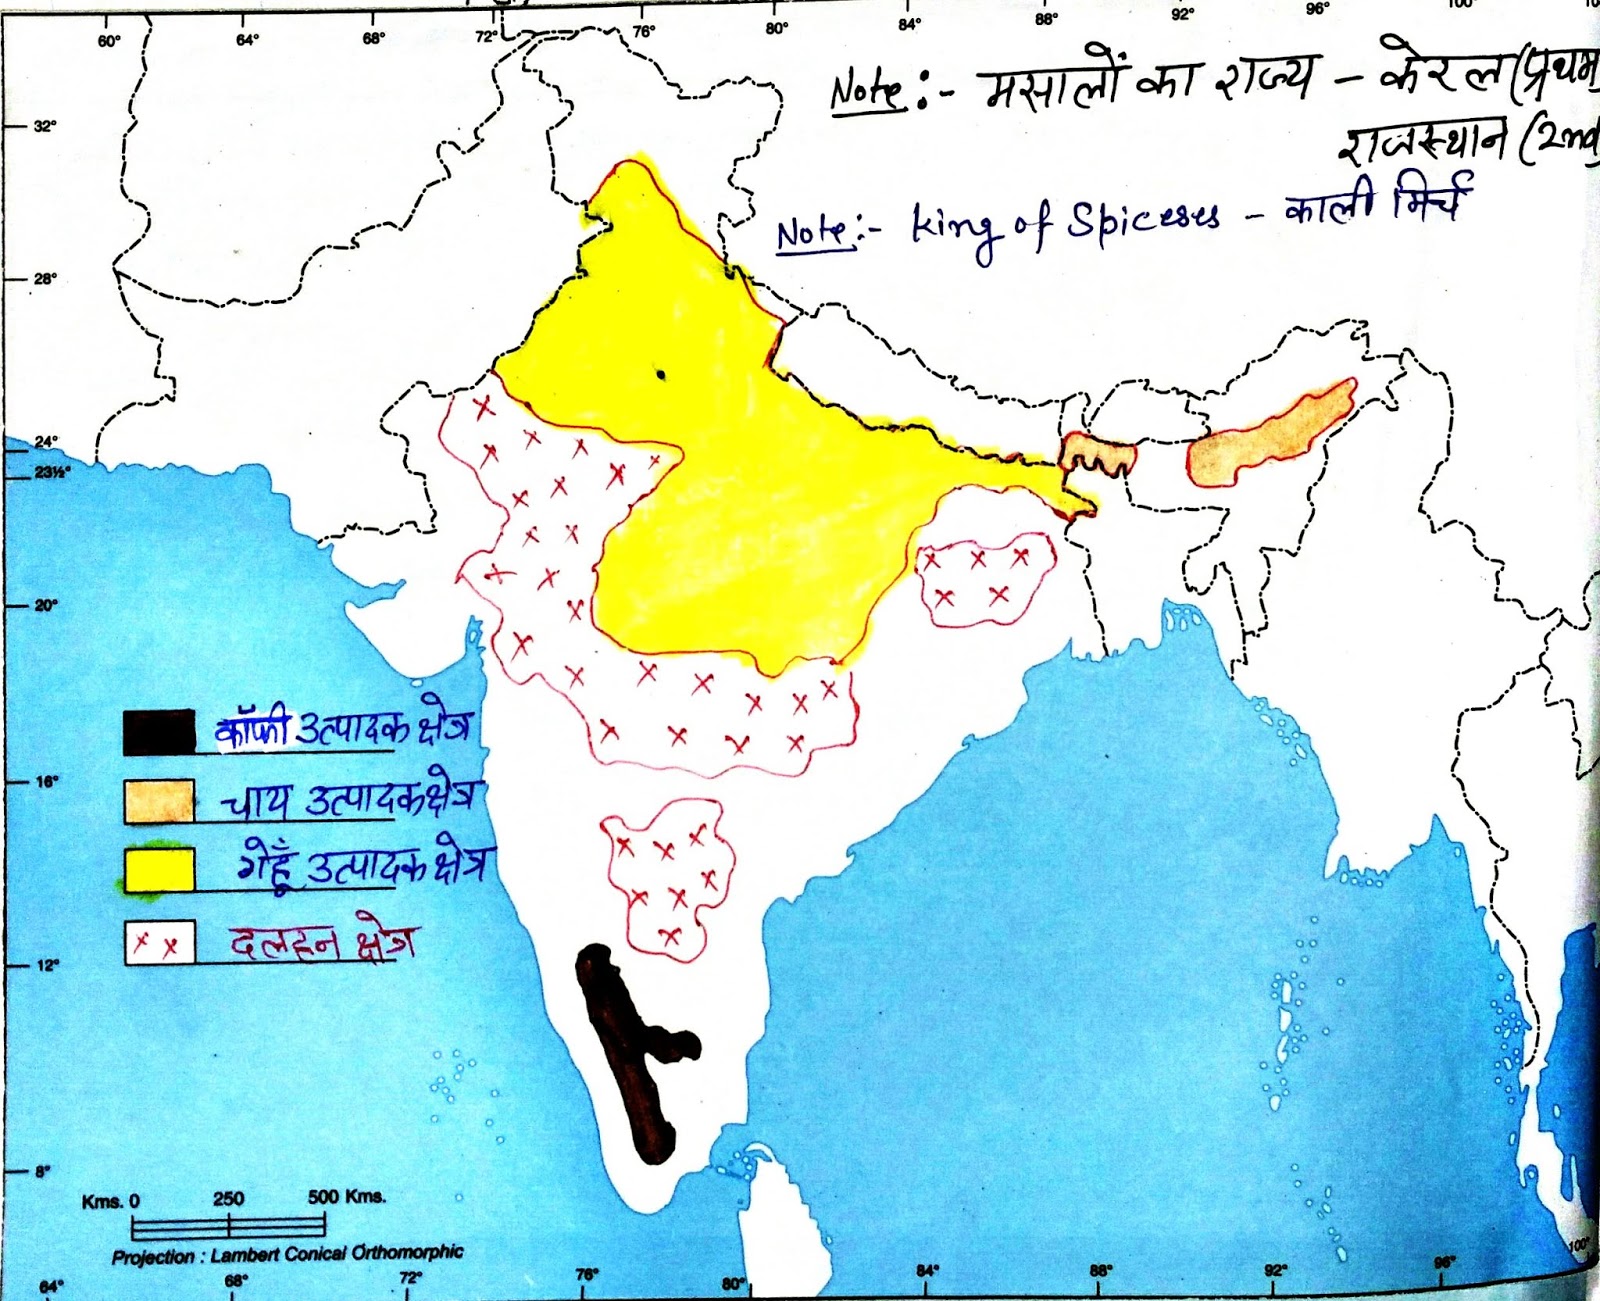 60° 64° 68° 72° 76° 80° 84° 88° 92° 96° 100°
Note:- मसालों का राज्य – केरल (प्रथम)
राजस्थान (2nd
Note:- king of Spiceses – काली मिर्च
32°
28°
24°
23½°
20°
16°
12°
8°
कॉफी उत्पादक क्षेत्र
चाय उत्पादक क्षेत्र
गेहूँ उत्पादक क्षेत्र
दलहन क्षेत्र
Kms. 0 250 500 Kms.
Projection : Lambert Conical Orthomorphic
64° 68° 72° 76° 80° 84° 88° 92° 96° 100°